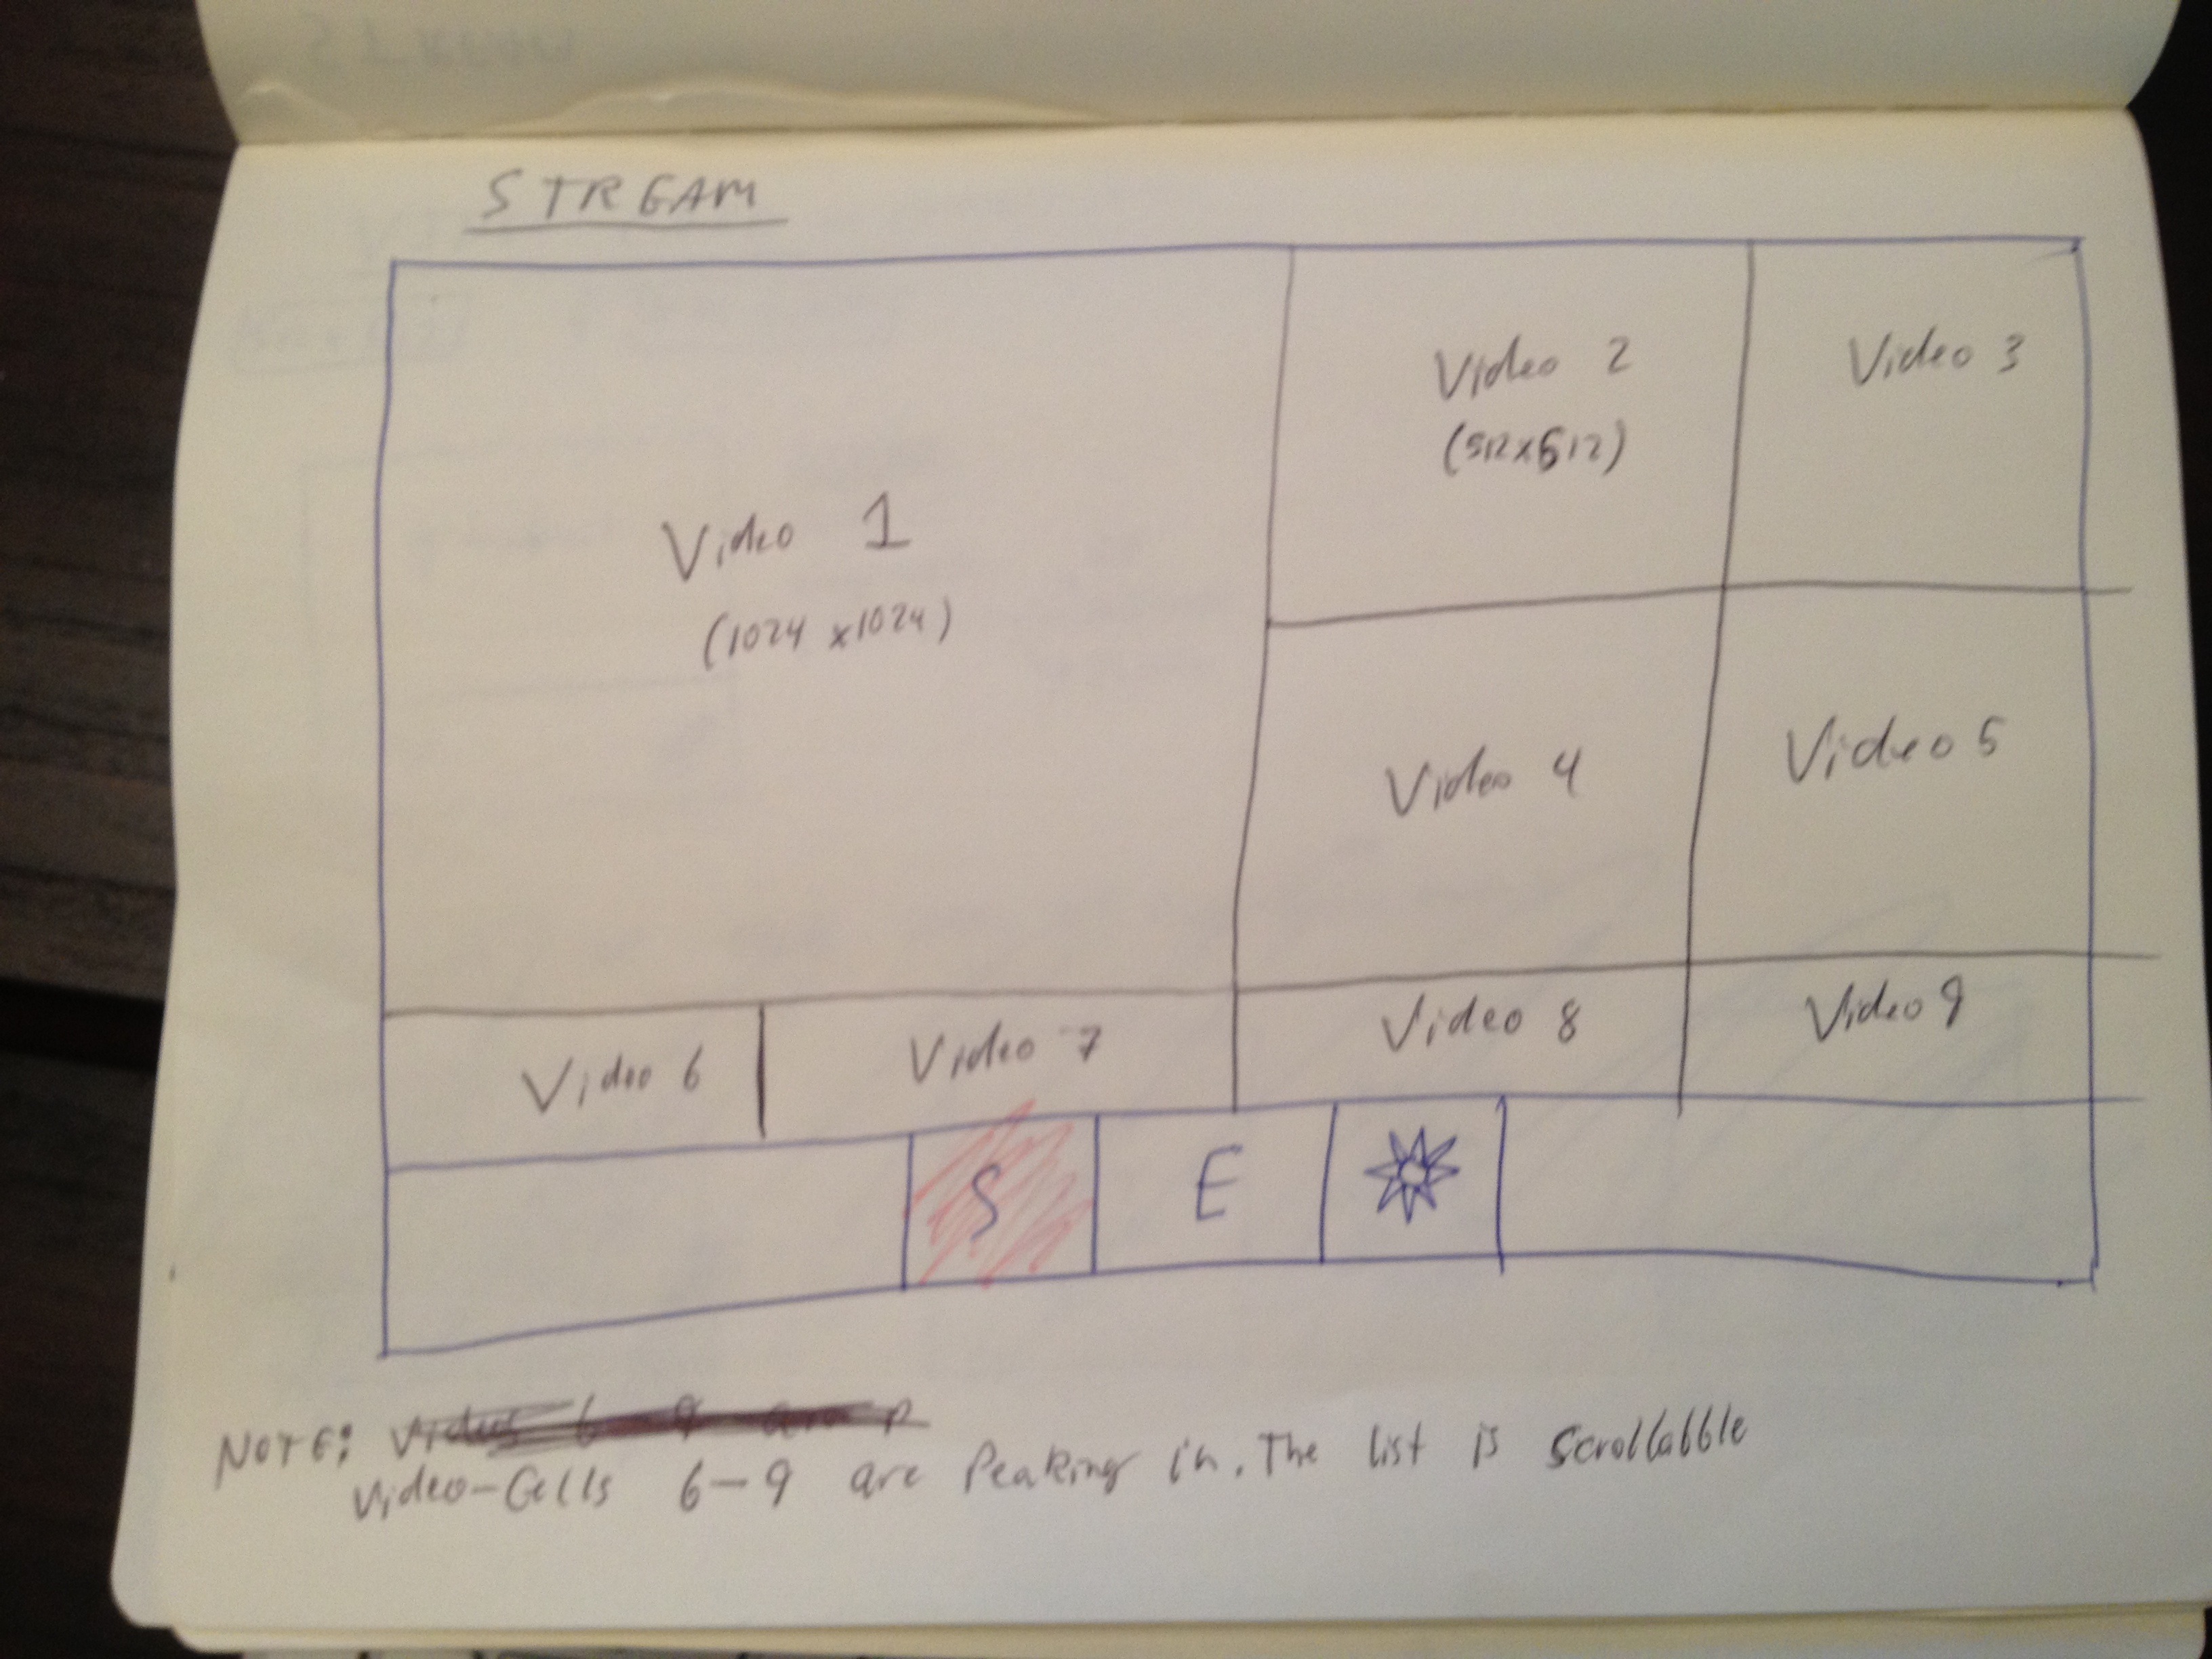 STREAM
Video 1
(1024 x1024)
Video 2
(512x512)
Video 3
Video 4
Video 5
Video 6
Video 7
Video 8
Video 9
S
E
NOTE:
Video-Cells 6-9 are Peaking in. The list is scrollabble